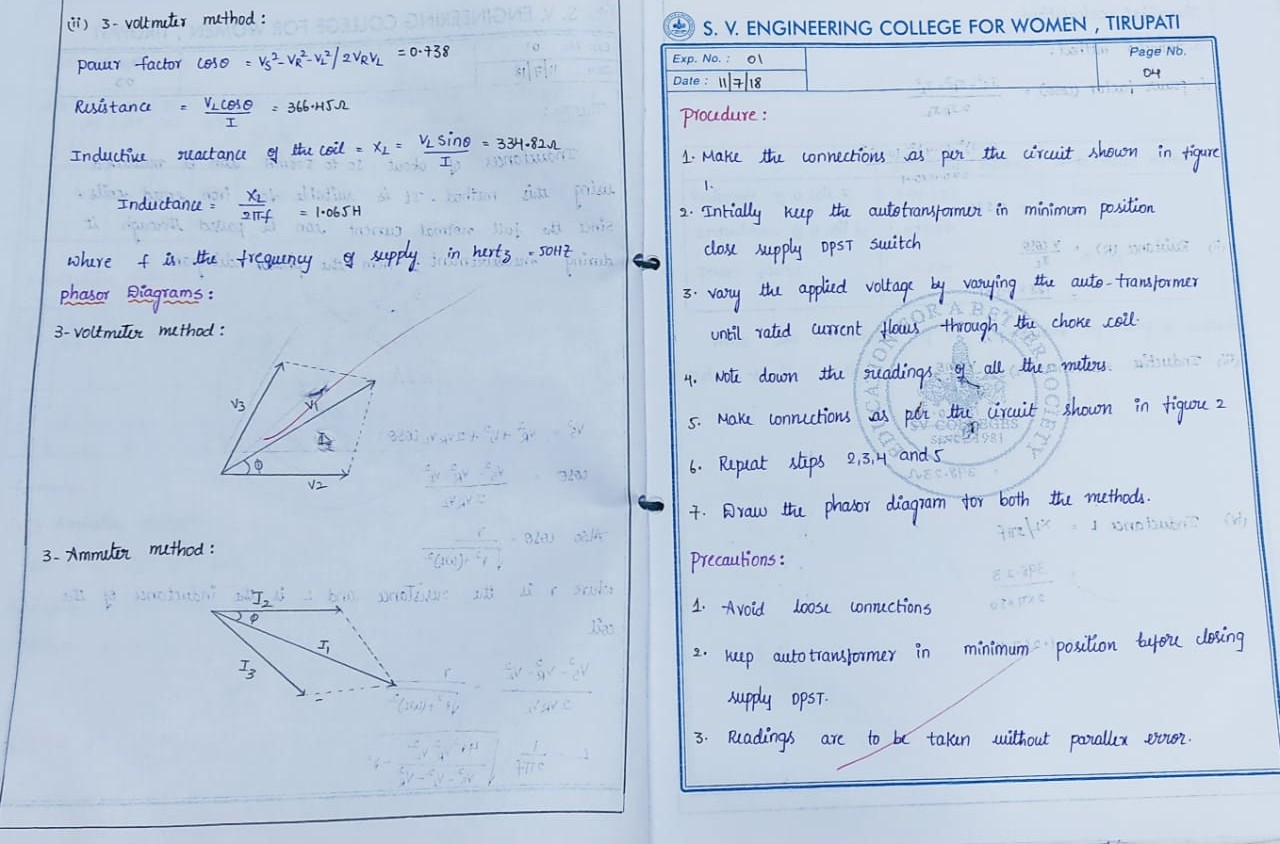 (ii) 3-voltmeter method:
power factor cosθ = Vs²-VR²-VL²/2VRVL = 0.738
Resistance = VLcosθ/I = 366.45Ω
Inductive reactance of the coil = XL = VL Sinθ/I = 334.82Ω
Inductance = XL/2πf = 1.065H
where f is the frequency of supply in hertz = 50HZ
phasor Diagrams:
3-voltmeter method:
V3
V1
φ
V2
3-Ammeter method:
I2
φ
I1
I3
S. V. ENGINEERING COLLEGE FOR WOMEN, TIRUPATI
Exp. No. : 01
Page Nb.
04
Date : 11/7/18
procedure:
1. Make the connections as per the circuit shown in figure
1.
2. Intially keep the autotransformer in minimum position
close supply DPST switch
3. vary the applied voltage by varying the auto-transformer
until rated current flows through the choke coil.
4. Note down the readings of all the meters
5. Make connections as per the circuit shown in figure 2
6. Repeat steps 2,3,4 and 5
7. Draw the phasor diagram for both the methods.
precautions:
1. Avoid loose connections
2. keep autotransformer in minimum position before closing
supply DPST.
3. Readings are to be taken without parallex error.
EDUCATION FOR A BETTER SOCIETY
SV COLLEGES
SINCE 1981